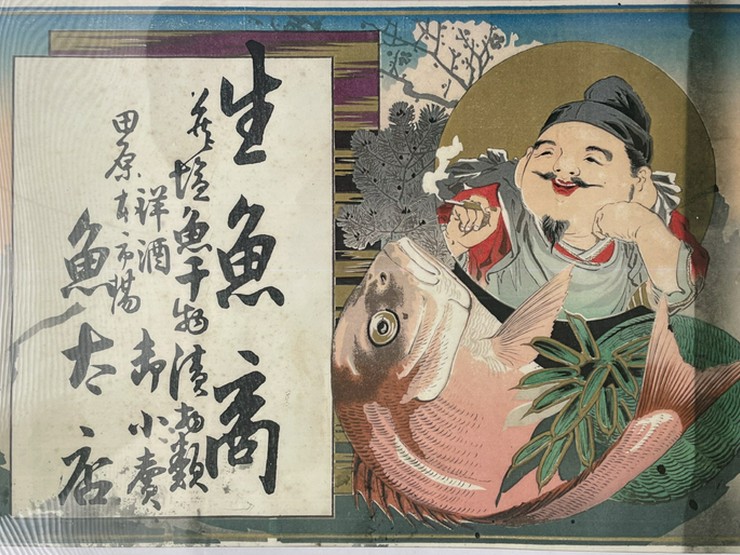 生魚商
塩魚干物漬物類
洋酒
卸小売
田原本市場
魚大店